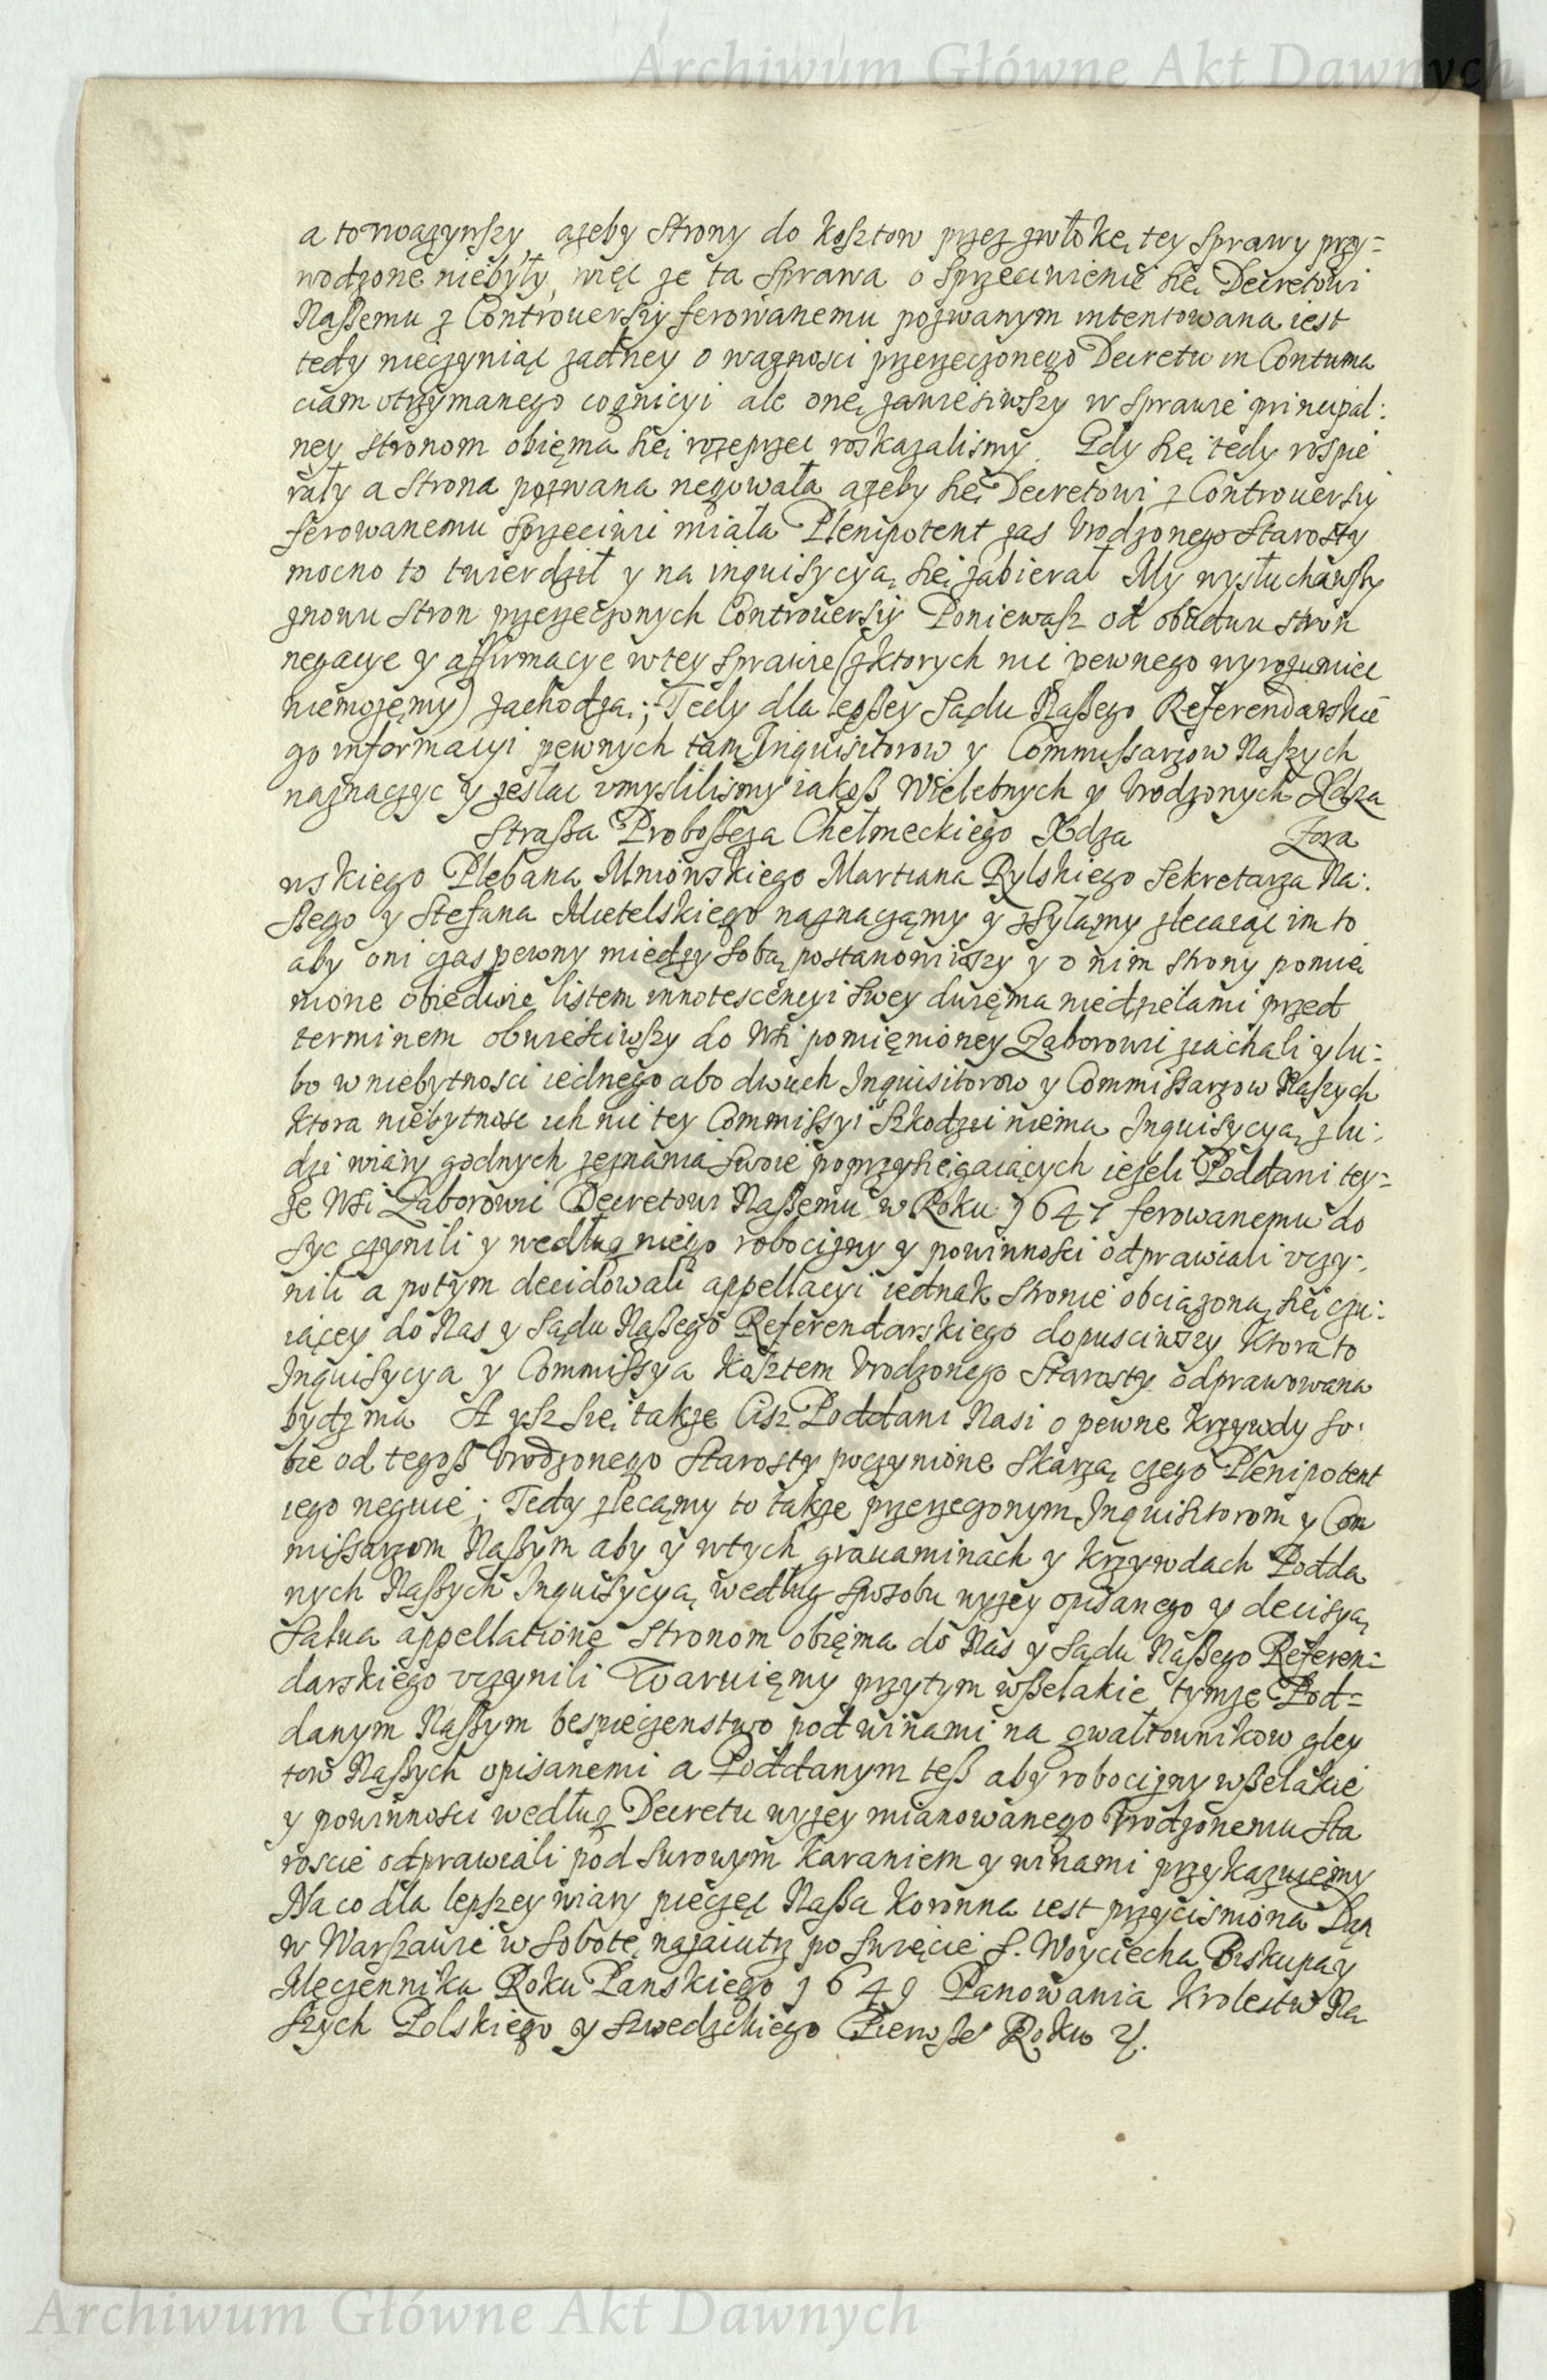 Archiwum Główne Akt Dawnych
a to uwazywszy, azeby strony do kosztow przez zwłokę tey sprawy przy=
wodzone niebyły, więc ze ta sprawa o sprzeciwienie się Decretowi
Naszemu z Controuersiy ferowanemu pozwanym intentowana iest
tedy nieczyniąc zadney o waznosci przerzeczonego Decretu in Contuma
ciam otrzymanego cognicyi ale onę zawiesiwszy w sprawie principal:
ney stronom obięma się rozeprzec roskazalismy. Gdy się tedy rospie
rały a strona pozwana negowała azeby się Decretowi z Controuersiy
ferowanemu sprzeciwi miała Plenipotent zas Vrodzonego Starosty
mocno to twierdził y na inquisycyą się zabierał My wysłuchawszy
znowu stron przerzeczonych Controuersiy Poniewasz od obudwu stron
negacye y affirmacye w tey sprawie (z ktorych nic pewnego wyrozumiec
niemozęmy) zachodzą; Tedy dla lepszey Sądu Naszego Referendarskie
go informacyi pewnych tam Inquisitorow y Commissarzow Naszych
naznaczyc y zesłac vmyslilismy iakosz Wielebnych y Vrodzonych Xdza
Strasza Proboszcza Chełmeckiego Xdza Zora
wskiego Plebana Mniowskiego Martiana Rylskiego Sekretarza Na:
szego y Stefana Mietelskiego naznaczamy y zsyłamy zlecaiąc im to
aby oni czas pewny między sobą postanowiwszy y o nim strony pomie
nione obiedwie listem innotescencyi swey dwięma niedzielami przed
terminem obwiesciwszy do Wsi pomięnioney Zaborowi ziachali y lu=
bo w niebytnosci iednego abo dwuch Inquisitorow y Commissarzow Naszych
ktora niebytnosc ich nic tey Commissyi szkodzic niema Inquisycyą z lu:
dzi wiary godnych zeznania swoie poprzysięgaiących iezeli Poddani tey=
ze Wsi Zaborowi Decretowi Naszemu w Roku 1647 ferowanemu do
syc czynili y według niego robocizny y powinnosci odprawiali vczy:
nili a potym decidowali appellacyi iednak stronie obciązoną się czu:
iącey do Nas y Sądu Naszego Referendarskiego dopusciwszy Ktora to
Inquisycya y Commissya kosztem Vrodzonego Starosty odprawowana
bydz ma A ysz się takze cisz Poddani Nasi o pewne krzywdy so:
bie od tegosz Vrodzonego Starosty poczynione skarzą czego Plenipotent
iego neguie; Tedy zlecamy to takze przerzeczonym Inquisitorom y Com
missarzom Naszym aby y w tych grauaminach y krzywdach Podda
nych Naszych Inquisycyą według sposobu wyzey opisanego y decisyą
Salua appellatione stronom obięma do Nas y Sądu Naszego Referen:
darskiego vczynili Waruięmy przytym wszelakie tymze Pod=
danym Naszym bespieczenstwo pod winami na gwałtownikow gley
tow Naszych opisanemi a Poddanym tesz aby robocizny wszelakie
y powinnosci według Decretu wyzey mianowanego Vrodzonemu Sta
roscie odprawiali pod surowym karaniem y winami przykazuięmy
Na co dla lepszey wiary pieczęc Nasza Koronna iest przycisniona Dan
w Warszawie w Sobotę nazaiutrz po Swięcie S. Woyciecha Biskupa y
Męczennika Roku Panskiego 1649 Panowania Krolestw Na
szych Polskiego y Szwedzkiego Pierwsze Roku
Archiwum Główne Akt Dawnych